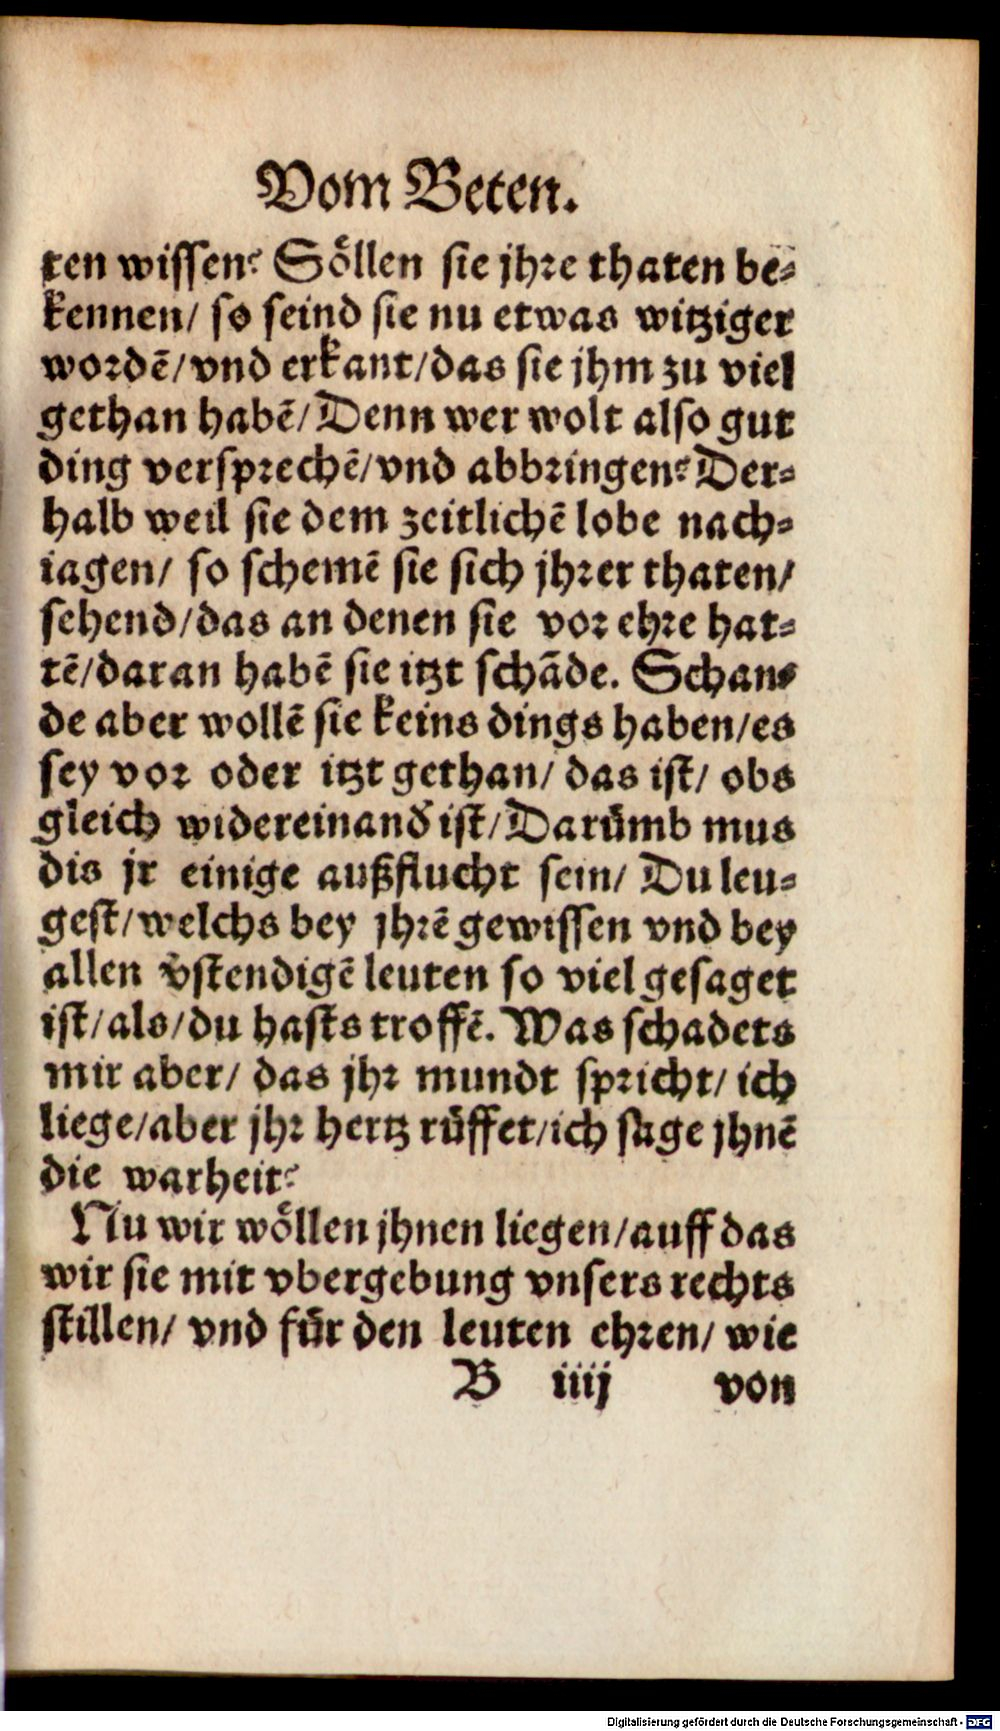 Vom Beten.
ten wissen? Söllen sie jhre thaten be-
kennen/ so seind sie nu etwas witziger
wordẽ/ vnd erkant/ das sie jhm zu viel
gethan habẽ/ Denn wer wolt also gut
ding versprechẽ/ vnd abbringen? Der-
halb weil sie dem zeitlichẽ lobe nach-
iagen/ so schemẽ sie sich jhrer thaten/
sehend/ das an denen sie vor ehre hat-
tẽ/ daran habẽ sie itzt schãde. Schan-
de aber wollẽ sie keins dings haben/ es
sey vor oder itzt gethan/ das ist/ obs
gleich widereinand̉ ist/ Darümb mus
dis jr einige außflucht sein/ Du leu-
gest/ welchs bey jhrẽ gewissen vnd bey
allen v̉stendigẽ leuten so viel gesaget
ist/ als/ du hasts troffẽ. Was schadets
mir aber/ das jhr mundt spricht/ ich
liege/ aber jhr hertz rüffet/ ich sage jhnẽ
die warheit?
Nu wir wöllen jhnen liegen/ auff das
wir sie mit vbergebung vnsers rechts
stillen/ vnd für den leuten ehren/ wie
B iiij von
Digitalisierung gefördert durch die Deutsche Forschungsgemeinschaft - DFG